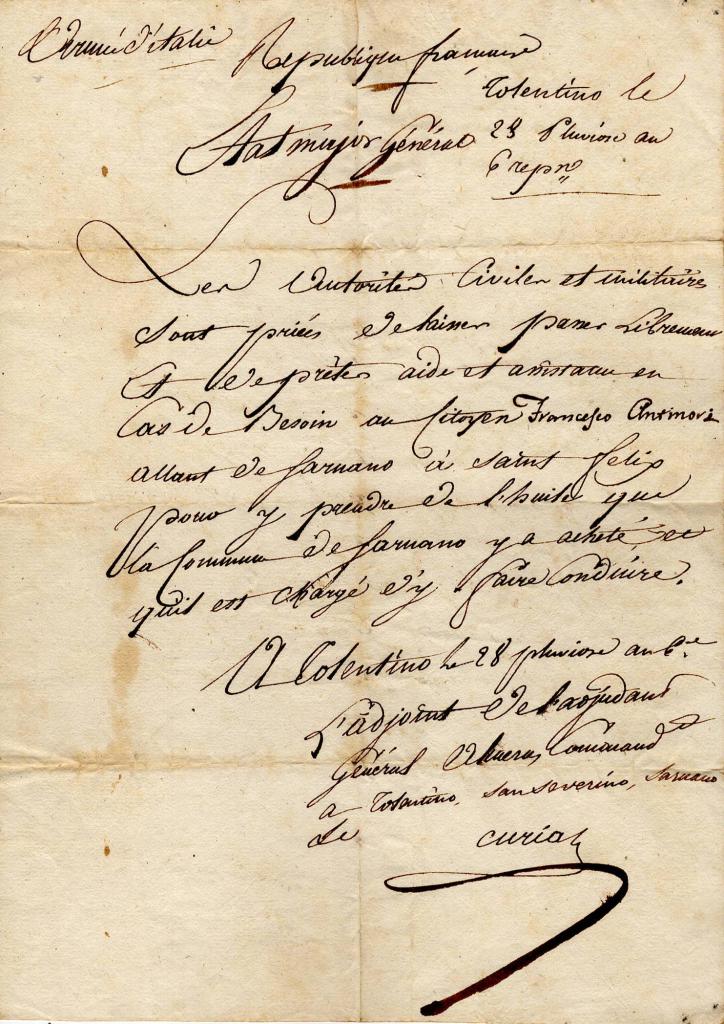 Armée d'italie
Republique francaise
Tolentino le
Etat major Général
28 Pluviose an
6 repne
Les Autorités Civiles et militaires
sont priées de laisser passer Librement
Et de prêter aide et assistance en
Cas de Besoin au Citoyen Francesco Antinori
allant de sarnano à saint felix
pour y prendre de l'huile que
la Commune de sarnano y a acheté et
quil est chargé d'y faire Conduire.
A Tolentino le 28 pluviose an 6.e
L'adjoint de L'adjudant
Général Commandt
a Tolentino, san severino, sarnano
curial